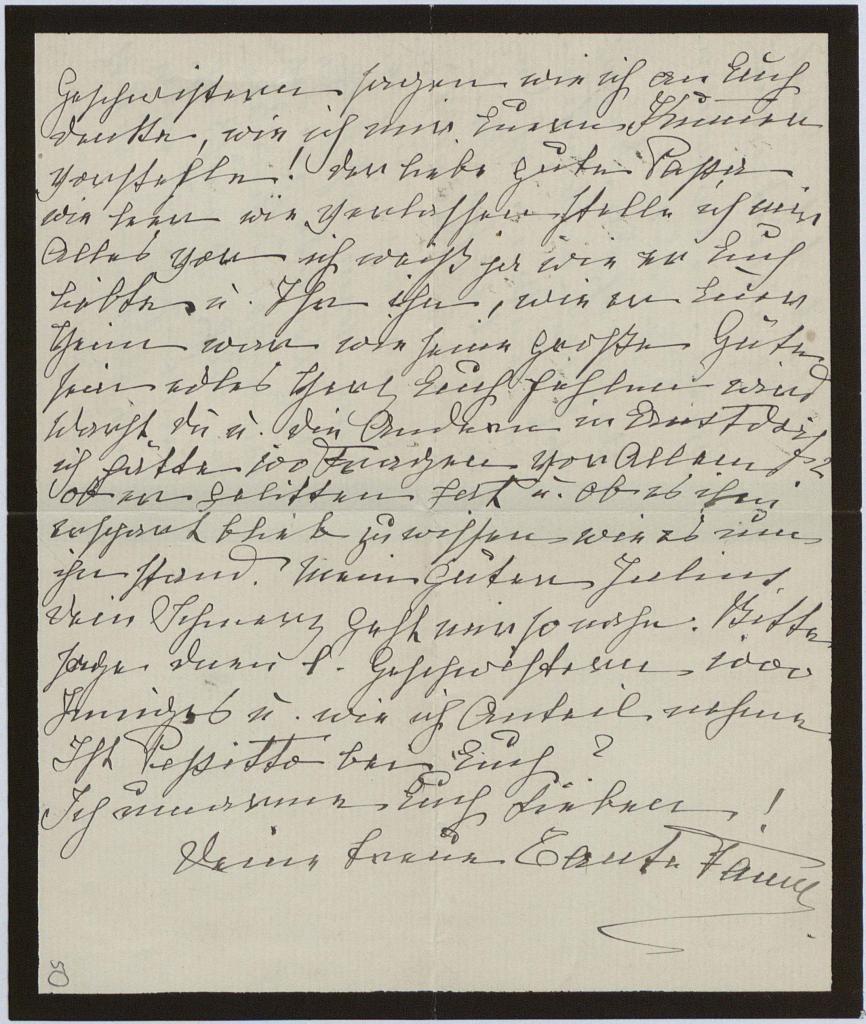 Geschwistern sagen wie ich an Euch
denke, wie ich mir Euern Kummer
vorstelle! Der liebe gute Papa
wie leer wie verlassen stelle ich mir
Alles vor ich weiß ja wie er Euch
liebte u. Ihr ihn, wie er Euer
Heim war wie seine große Güte
sein edles Herz Euch fehlen wird
Warst du u. die Andern in
ich hätte 100 Fragen vor Allem
ob er gelitten hat u. ob es ihm
erspart blieb zu wissen wie es um
ihn stand. Mein guter Julius
dein Schmerz geht mir so nahe. Bitte
sage deinen l. Geschwistern 1000
Inniges u. wie ich Anteil nehme
Ist Pepitto bei Euch?
Ich umarme Euch Lieben!
Deine treue Tante Fanny
50